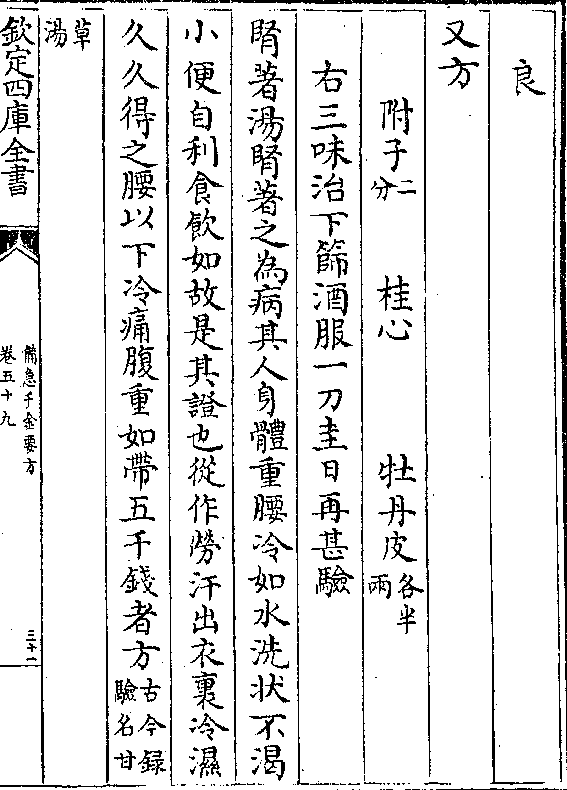 良
又方
附子二分 桂心 牡丹皮各半兩
右三味治下篩酒服一刀圭日再甚驗
腎著湯腎著之為病其人身體重腰冷如水洗状不渴
小便自利食飲如故是其證也從作勞汗出衣裏冷濕
久久得之腰以下冷痛腹重如帶五千錢者方古今録驗名甘
草湯
欽定四庫全書
備急千金要方
卷五十九
三十一